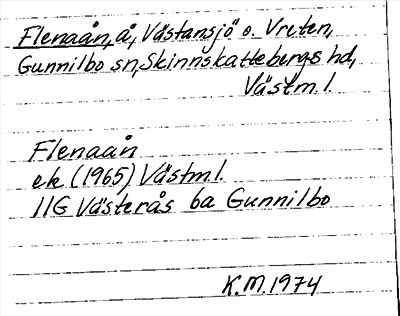 Flenaån, å, Västansjö o. Vreten,
Gunnilbo sn, Skinnskattebergs hd,
Västm l.
Flenaån
ek (1965) Västml.
11G Västerås ba Gunnilbo
K.M. 1974